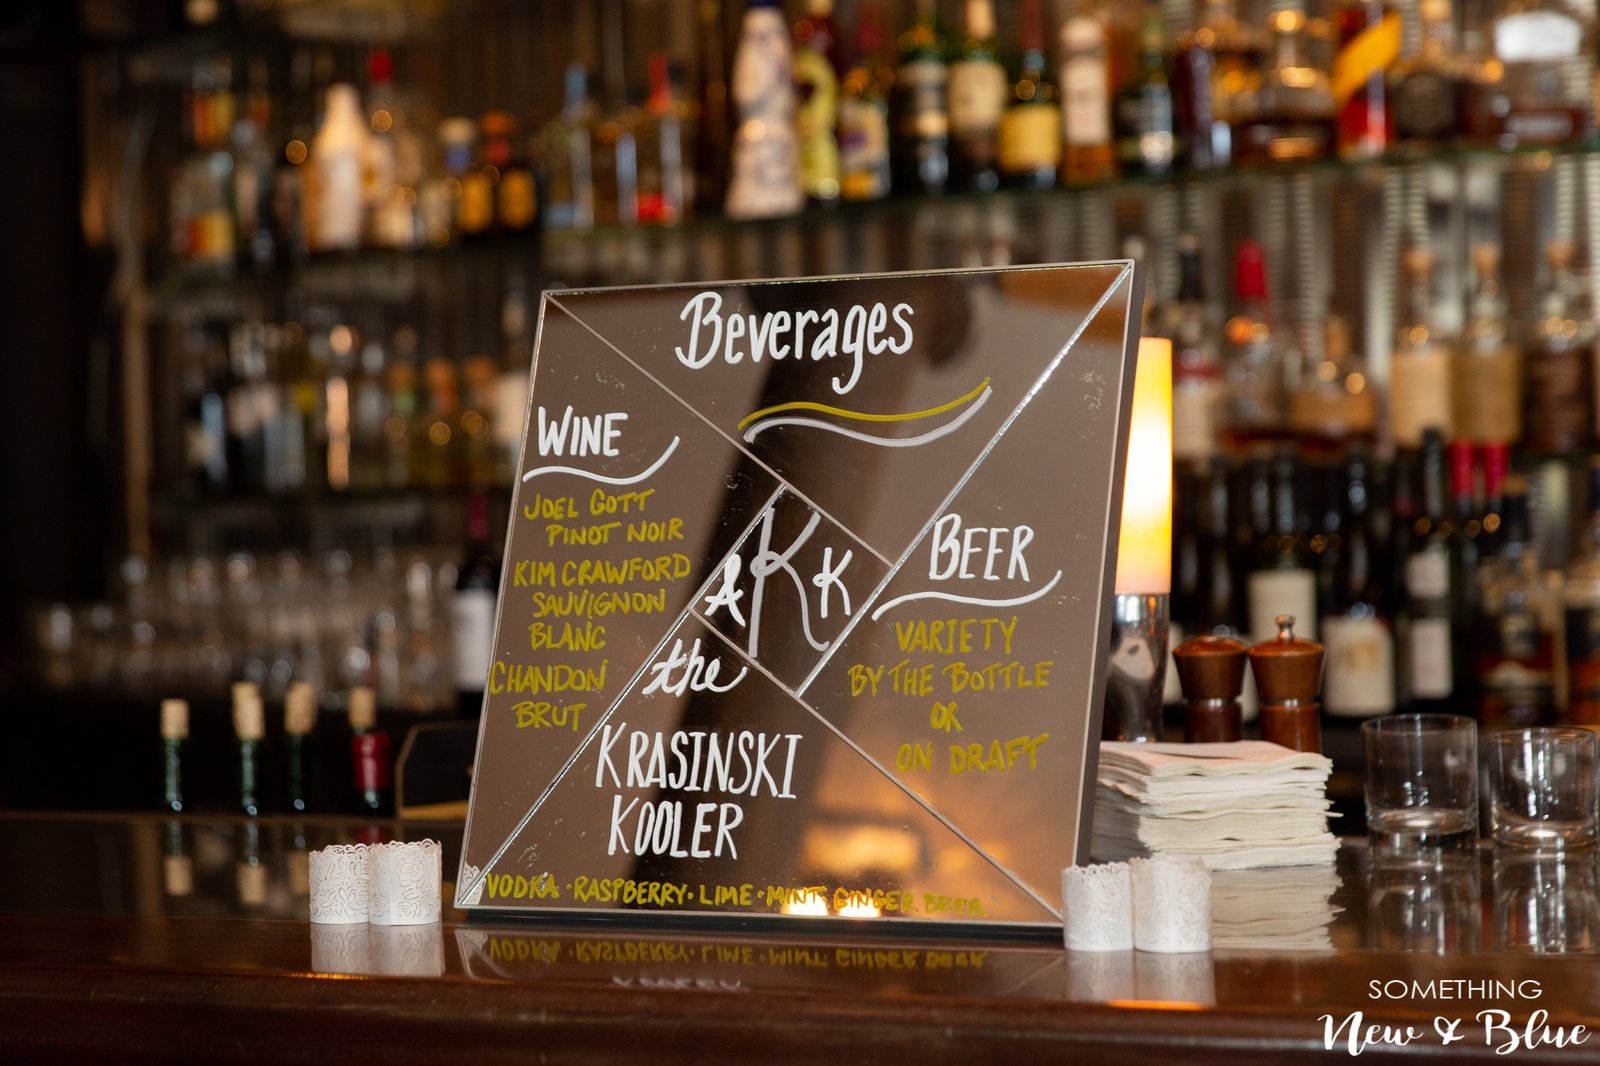 Beverages
WINE
JOEL GOTT
PINOT NOIR
KIM CRAWFORD
SAUVIGNON
BLANC
CHANDON
BRUT
AKK
BEER
VARIETY
BY THE BOTTLE
OR
ON DRAFT
the
KRASINSKI
KOOLER
VODKA · RASPBERRY · LIME · MINT · GINGER BEER
SOMETHING
New & Blue